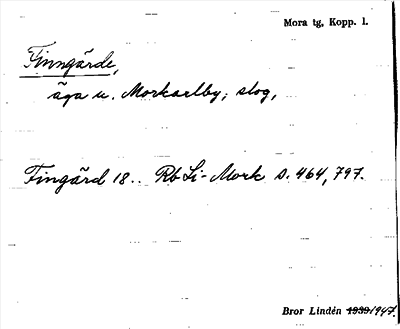 Mora tg, Kopp. l.
Finngärde,
äga u. Morkarlby; slog,
Fingärd 18.. Rb Li-Mork s. 464, 797.
Bror Lindén 1939/1947.